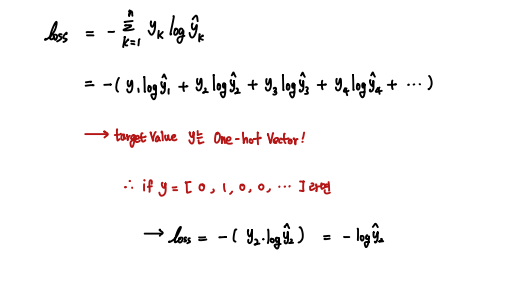 loss = - n Σ k=1 yₖ log ŷₖ
= -( y₁ log ŷ₁ + y₂ log ŷ₂ + y₃ log ŷ₃ + y₄ log ŷ₄ + ⋯ )
→ target value y는 One-hot Vector!
∴ if y = [ 0, 1, 0, 0, ⋯ ] 라면
→ loss = -( y₂·log ŷ₂ ) = - log ŷ₂